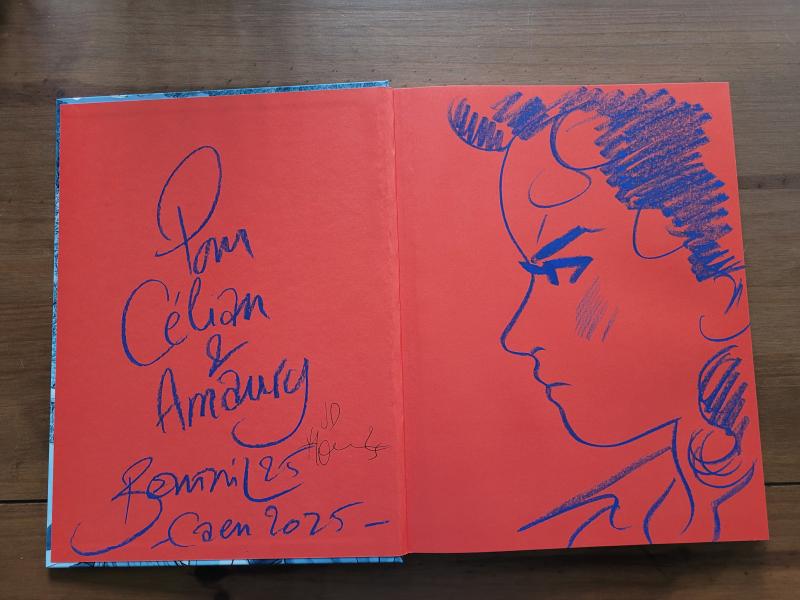 Pour
Célian
&
Amaury
Bonnil 25
JD
- Caen 2025 -